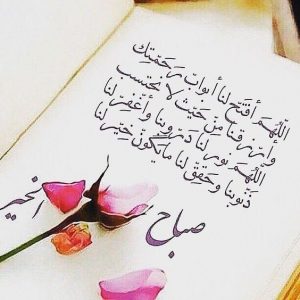 اللهم افتح لنا أبواب رحمتك
وارزقنا من حيث لا نحتسب
اللهم نور لنا دروبنا وأغفر لنا
ذنوبنا وحقق لنا ما يكون خير لنا
صباح الخير